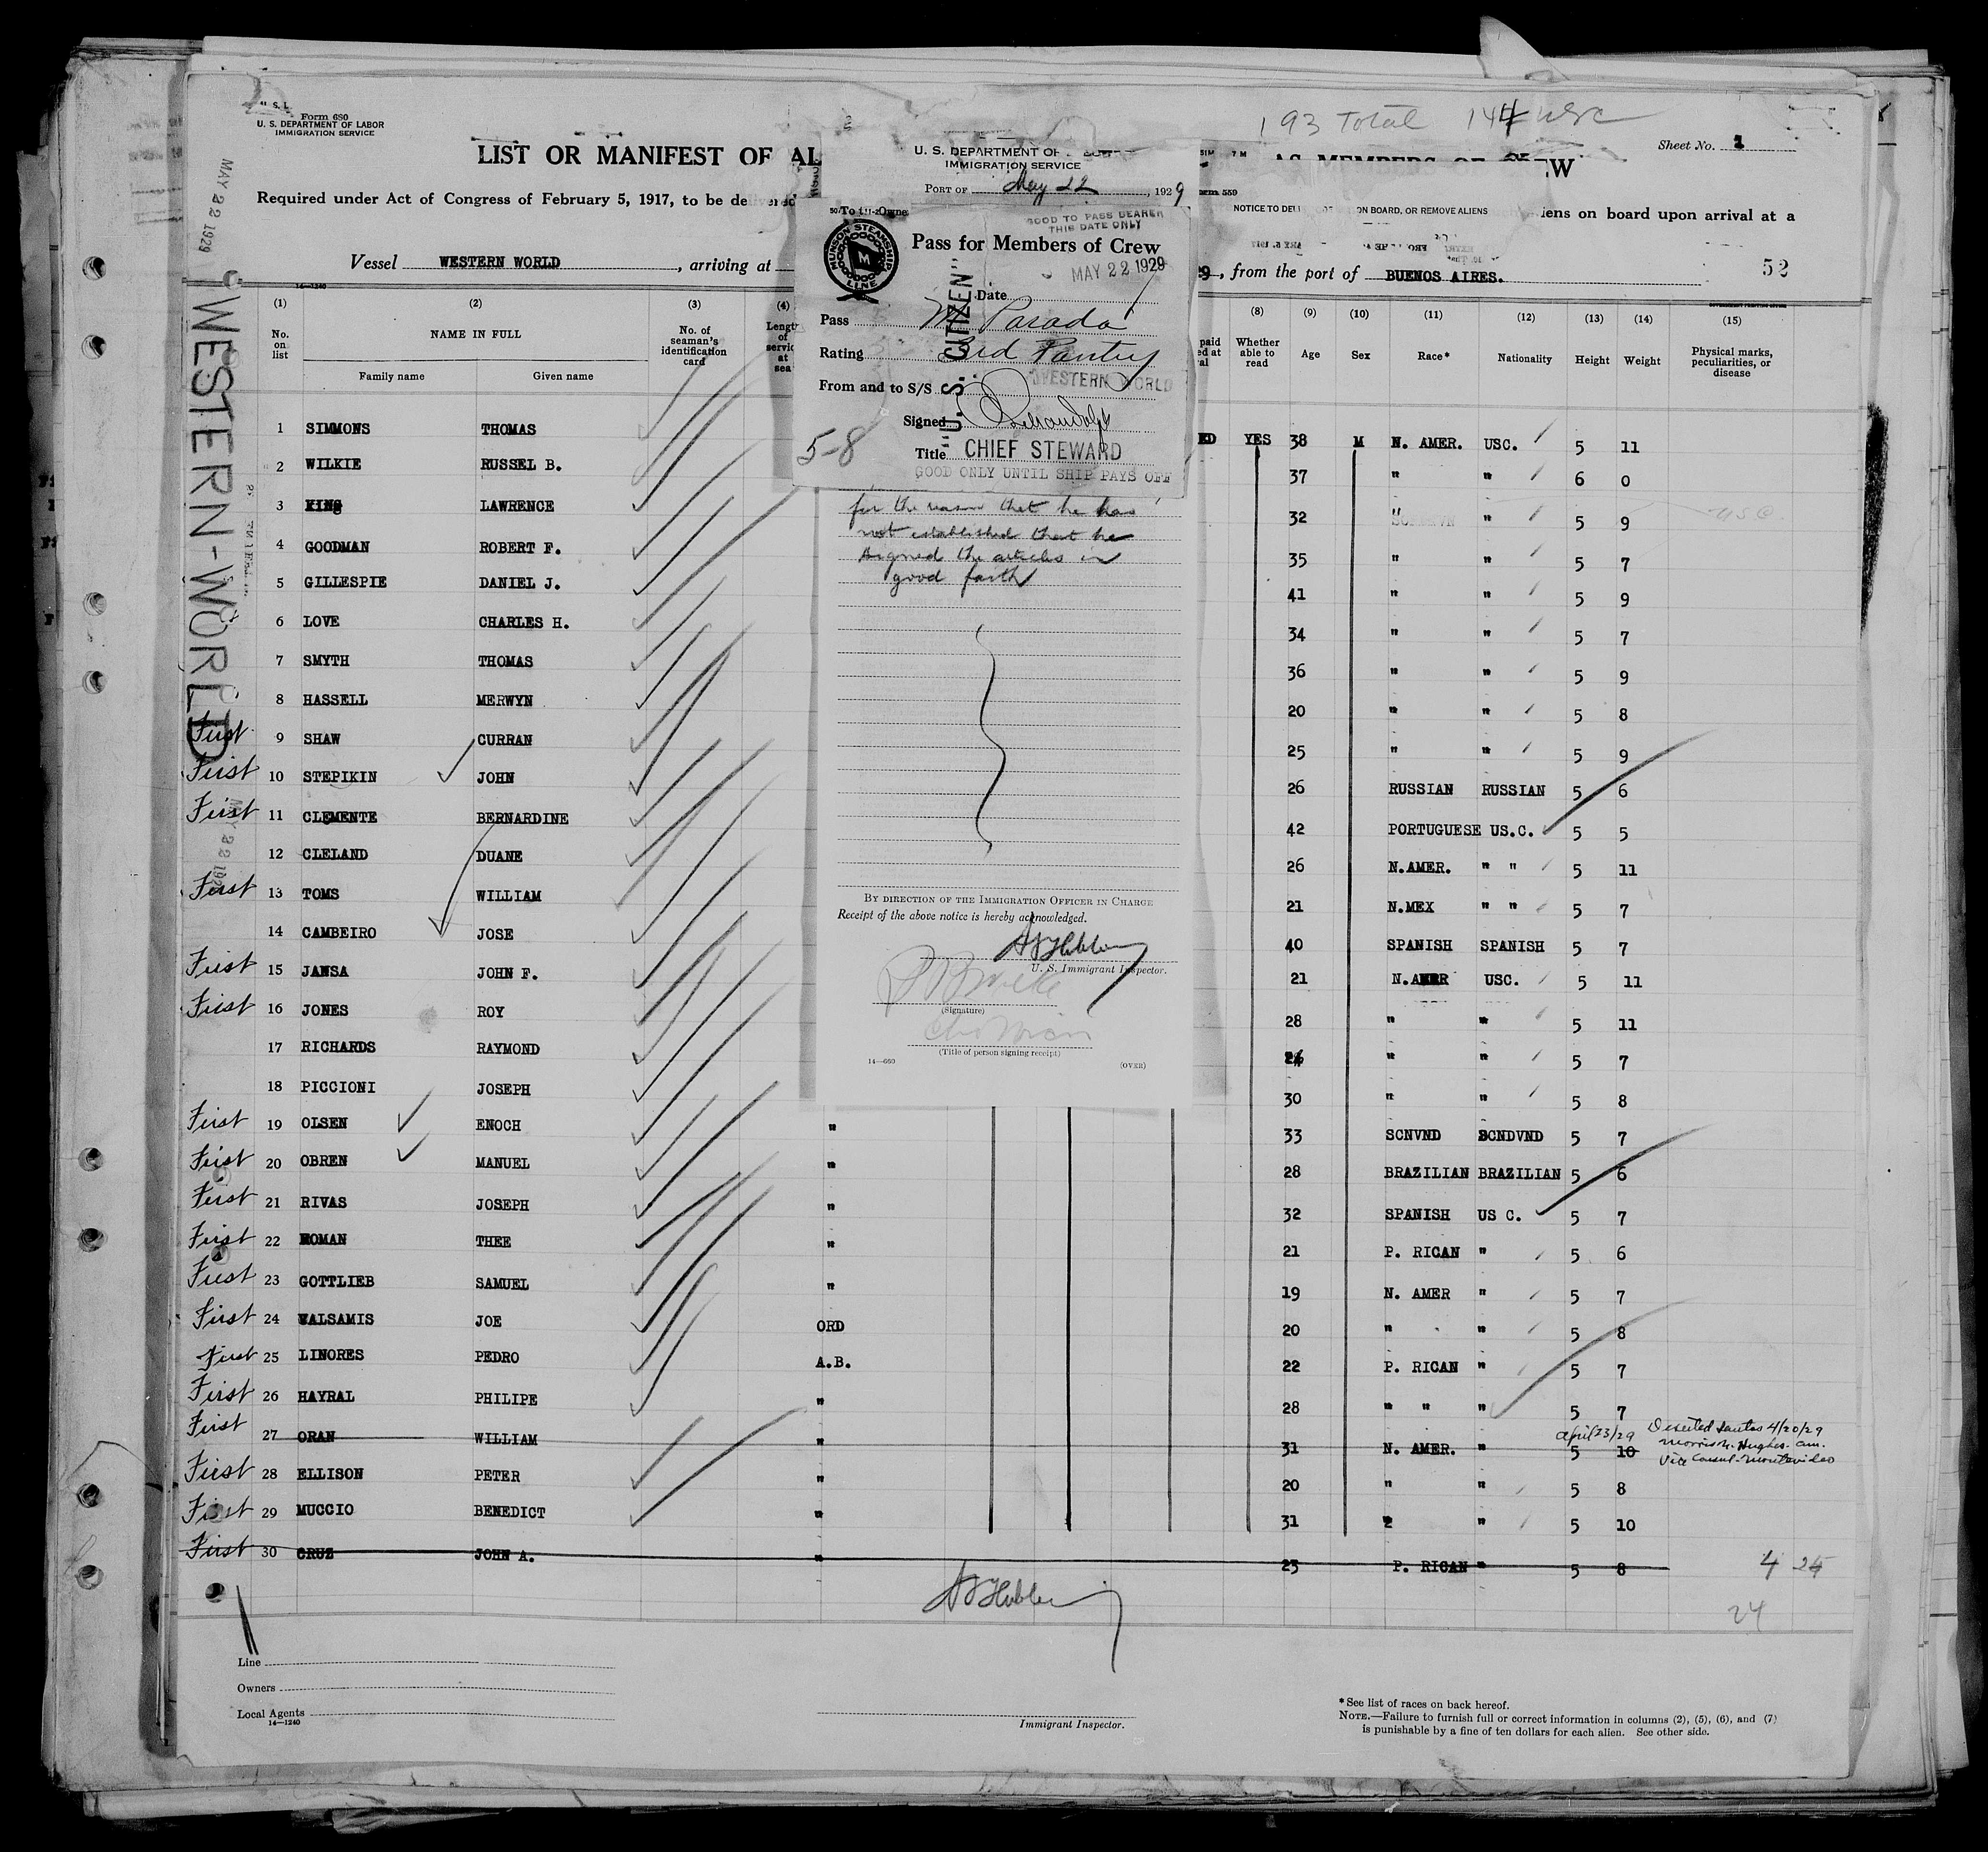 193 Total 144 USC
Form 680
U. S. DEPARTMENT OF LABOR
IMMIGRATION SERVICE
Sheet No. 1
LIST OR MANIFEST OF AL
AS MEMBERS OF CREW
Required under Act of Congress of February 5, 1917, to be delivered
iens on board upon arrival at a
Vessel WESTERN WORLD, arriving at
9, from the port of BUENOS AIRES.
52
MAY 22 1929
WESTERN-WORLD
MAY 22 192
U. S. DEPARTMENT OF
IMMIGRATION SERVICE
PORT OF May 22, 1929
Form 559
NOTICE TO
ON BOARD, OR REMOVE ALIENS
To
MUNSON STEAMSHIP LINE
M
GOOD TO PASS BEARER
THIS DATE ONLY
Pass for Members of Crew
MAY 22 1929
Date
Pass M Parada
Rating 3rd Pantry
From and to S/S WESTERN WORLD
Signed
Title CHIEF STEWARD
GOOD ONLY UNTIL SHIP PAYS OFF
"U. S. CITIZEN"
5-8
for the reason that he has
not established that he
signed the articles in
good faith
BY DIRECTION OF THE IMMIGRATION OFFICER IN CHARGE
Receipt of the above notice is hereby acknowledged.
U. S. Immigrant Inspector.
(Signature)
(Title of person signing receipt)
14—660
(OVER)
14—1240
(1) (2) (3) (4) (8) (9) (10) (11) (12) (13) (14) (15)
No. on list
NAME IN FULL
Family name Given name
No. of seaman's identification card
Length of service at sea
Whether able to read
Age
Sex
Race*
Nationality
Height
Weight
Physical marks, peculiarities, or disease
1 SIMMONS THOMAS ED YES 38 M N. AMER. USC. 5 11
2 WILKIE RUSSEL B. 37 " " 6 0
3 KING LAWRENCE 32 " " 5 9 USC
4 GOODMAN ROBERT F. 35 " " 5 7
5 GILLESPIE DANIEL J. 41 " " 5 9
6 LOVE CHARLES H. 34 " " 5 7
7 SMYTH THOMAS 36 " " 5 9
8 HASSELL MERWYN 20 " " 5 8
First 9 SHAW CURRAN 25 " " 5 9
First 10 STEPIKIN JOHN 26 RUSSIAN RUSSIAN 5 6
First 11 CLEMENTE BERNARDINE 42 PORTUGUESE US.C. 5 5
12 CLELAND DUANE 26 N.AMER. " " 5 11
First 13 TOMS WILLIAM 21 N.MEX " " 5 7
14 CAMBEIRO JOSE 40 SPANISH SPANISH 5 7
First 15 JANSA JOHN F. 21 N.AMER USC. 5 11
First 16 JONES ROY 28 " " 5 11
17 RICHARDS RAYMOND " " 5 7
18 PICCIONI JOSEPH 30 " " 5 8
First 19 OLSEN ENOCH " 33 SCNVND SCNDVND 5 7
First 20 OBREN MANUEL " 28 BRAZILIAN BRAZILIAN 5 6
First 21 RIVAS JOSEPH " 32 SPANISH US C. 5 7
First 22 ROMAN THEE " 21 P. RICAN " 5 6
First 23 GOTTLIEB SAMUEL " 19 N. AMER " 5 7
First 24 VALSAMIS JOE ORD 20 " " 5 8
First 25 LINORES PEDRO A.B. 22 P. RICAN " 5 7
First 26 HAYRAL PHILIPE " 28 " " " 5 7
First 27 ORAN WILLIAM " 31 N. AMER. " 5 10
April 23/29 Deserted Santos 4/20/29
Morris N. Hughes. Am.
Vice Consul. Montevideo
First 28 ELLISON PETER " 20 " " 5 8
First 29 MUCCIO BENEDICT " 31 " " 5 10
First 30 CRUZ JOHN A. " 23 P. RICAN " 5 8
4 24
24
Line
Owners
Local Agents
14—1240
Immigrant Inspector.
*See list of races on back hereof.
NOTE.—Failure to furnish full or correct information in columns (2), (5), (6), and (7)
is punishable by a fine of ten dollars for each alien. See other side.